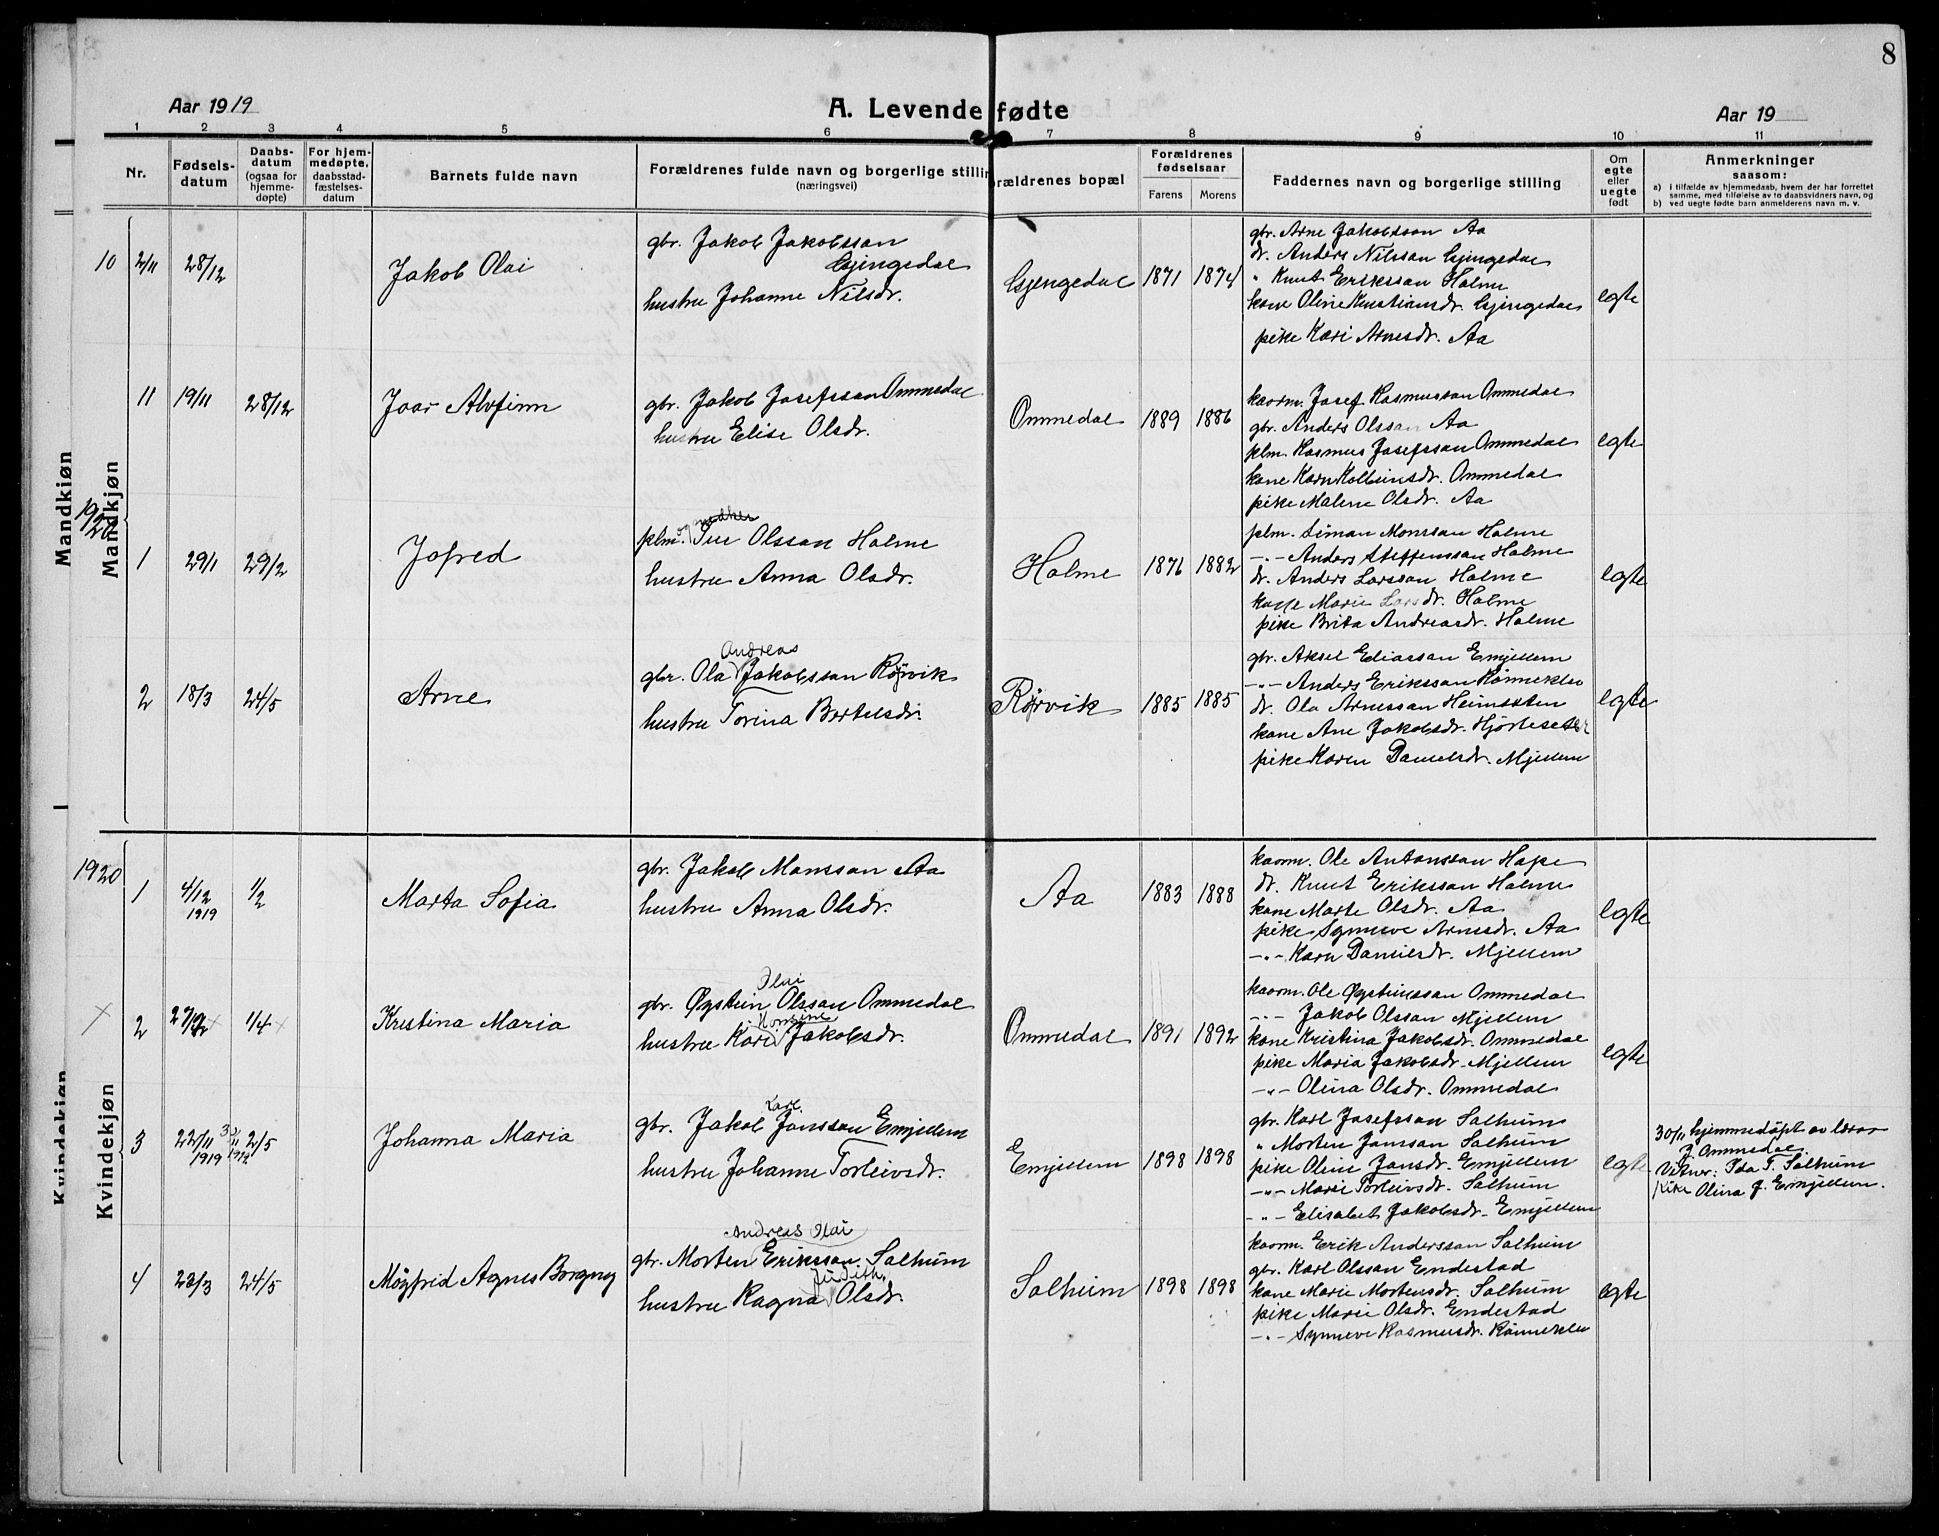 8
Aar 1919
A. Levende fødte
Aar 19
1 2 3 4 5 6 7 8 9 10 11
Nr.
Fødsels-
datum
Daabs-
datum
(ogsaa for
hjemme-
døpte)
For hjem-
medøpte,
daabsstad-
fæstelses-
datum
Barnets fulde navn
Forældrenes fulde navn og borgerlige stillin
(næringsvei)
orældrenes bopæl
Forældrenes
fødselsaar
Farens Morens
Faddernes navn og borgerlige stilling
Om
egte
eller
uegte
født
Anmerkninger
saasom:
a) i tilfælde av hjemmedaab, hvem der har forrettet
samme, med tilføielse av to daabsvidners navn, og
b) ved uegte fødte barn anmelderens navn m. v.
Mandkjøn
Mandkjøn
10 2/11 28/12
Jakob Olai
gbr. Jakob Jakobssan
Gjengedal
hustru Johanne Nilsdr.
Gjengedal 1871 1874
gbr. Arne Jakobssan Aa
dr. Anders Nilssan Gjengedal
" Knut Erikssan Holme
kone Oline Kristiansdr. Gjengedal
pike Kari Arnesdr. Aa
egte
11 19/11 28/12
Joar Alvfinn
gbr. Jakob Josefssan Ommedal
hustru Elise Olsdr.
Ommedal 1889 1886
kaarm. Josef Rasmussan Ommedal
gbr. Anders Olssan Aa
plm. Rasmus Josefssan Ommedal
kone Karn Kolbeinsdr. Ommedal
pike Malene Olsdr. Aa
egte
1920
1 29/1 29/2
Jofred
plm. Olssan Holme
hustru Anna Olsdr.
Holme 1876 1882
plm. Simon Monssan Holme
-"- Anders Steffenssan Holme
dr. Anders Larssan Holme
kone Marie Larsdr. Holme
pike Brita Andreasdr. Holme
egte
2 18/3 24/5
Arne
Andreas
gbr. Ola Jakobssan Rørvik
hustru Torina Bertelsdr.
Rørvik 1885 1885
gbr. Aksel Eliassan Emjellem
-"- Anders Erikssan Rønneklev
dr. Ola Arnessan Heimseten
kone Ane Jakobsdr. Hjorteseter
pike Karen Danielsdr. Mjellem
egte
Kvindekjøn
Kvindekjøn
1920
1 4/12 1/2
1919
Marta Sofia
gbr. Jakob Monssan Aa
hustru Anna Olsdr.
Aa 1883 1888
kaarm. Ole Antonssan Hope
dr. Knut Erikssan Holme
kone Marte Olsdr. Aa
pike Synneve Arnesdr. Aa
-"- Karn Danielsdr. Mjellem
egte
2 1/4
Kristina Maria
Olai
gbr. Øystein Olssan Ommedal
hustru Kari Jakobsdr.
Ommedal 1891 1892
kaarm. Ole Øystinssan Ommedal
-"- Jakob Olssan Mjellem
kone Kristina Jakobsdr. Ommedal
pike Maria Jakobsdr. Mjellem
-"- Olina Olsdr. Ommedal
egte
3 22/11 2/5
1919
Johanna Maria
Karl
gbr. Jakob Janssan Emjellem
hustru Johanne Torleivsdr.
Emjellem 1898 1898
gbr. Karl Josefssan Solheim
" Morten Jonsson Solheim
pike Oline Jonsdr. Emjellem
-"- Marie Torleivsdr. Solheim
-"- Elisabet Jakobsdr. Emjellem
egte
30/11 hjemmedøpt av lærar
J. Ommedal.
Vitner: Ida T. Solheim
Pike Olina J. Emjellem.
4 23/3 24/5
Møyfrid Agnes Borgny
Andreas Olai
gbr. Morten Erikssan Solheim
Judith
hustru Ragna Olsdr.
Solheim 1898 1898
kaarm. Erik Anderssan Solheim
gbr. Karl Olssan Endestad
kone Marie Mortensdr. Solheim
pike Marie Olsdr. Endestad
-"- Synneve Rasmusdr. Rønneklev
egte